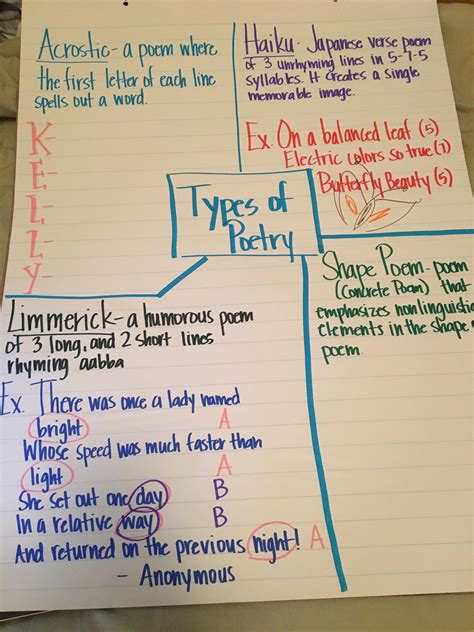 Acrostic- a poem where
the first letter of each line
spells out a word.
K-
E-
L-
L-
Y-
Haiku- Japanese verse poem
of 3 unrhyming lines in 5-7-5
syllables. It creates a single
memorable image.
Ex. On a balanced leaf (5)
Electric colors so true (7)
Butterfly Beauty (5)
Types of
Poetry
Limmerick- a humorous poem
of 3 long, and 2 short lines
rhyming aabba
Ex. There was once a lady named
bright A
Whose speed was much faster than
light A
She set out one day B
In a relative way B
And returned on the previous night! A
- Anonymous
Shape Poem- poem
(Concrete Poem) that
emphasizes nonlinguistic
elements in the shape
poem.